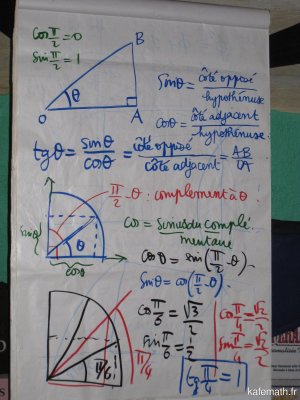 Cos π/2 = 0
Sin π/2 = 1
B
θ
O
A
Sinθ = côté opposé / hypothénuse
cosθ = côté adjacent / hypothénuse
tgθ = sinθ / cosθ = côté opposé / côté adjacent = AB / OA
π/2 - θ : complement à θ
cos = sinus du complémentaire
sinθ
θ
cosθ
Cosθ = sin(π/2 - θ)
Sinθ = cos(π/2 - θ)
Cos π/6 = √3/2
Sin π/6 = 1/2
Cos π/4 = √2/2
Sin π/4 = √2/2
π/6
π/4
tg π/4 = 1
kafemath.fr